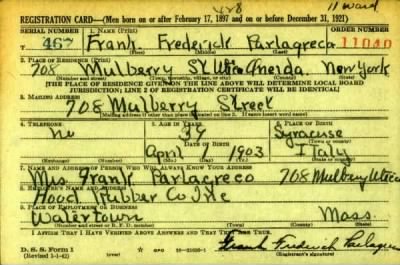 11 Ward
REGISTRATION CARD—(Men born on or after February 17, 1897 and on or before December 31, 1921)
SERIAL NUMBER 1. NAME (Print) ORDER NUMBER
467 Frank Frederick Parlagreco 11040
(First) (Middle) (Last)
2. PLACE OF RESIDENCE (Print)
708 Mulberry St. Utica Oneida. New York
(Number and street) (Town, township, village, or city) (County) (State)
[THE PLACE OF RESIDENCE GIVEN ON THE LINE ABOVE WILL DETERMINE LOCAL BOARD
JURISDICTION; LINE 2 OF REGISTRATION CERTIFICATE WILL BE IDENTICAL]
3. MAILING ADDRESS
708 Mulberry Street
[Mailing address if other than place indicated on line 2. If same insert word same]
4. TELEPHONE 5. AGE IN YEARS 6. PLACE OF BIRTH
no 39 Syracuse
DATE OF BIRTH
April 1903 Italy
(Exchange) (Number) (Mo.) (Day) (Yr.) (State or country)
7. NAME AND ADDRESS OF PERSON WHO WILL ALWAYS KNOW YOUR ADDRESS
Mrs Frank Parlagreco 708 Mulberry Utica
8. EMPLOYER'S NAME AND ADDRESS
Hood Rubber Co Inc
9. PLACE OF EMPLOYMENT OR BUSINESS
Watertown Mass.
(Number and street or R. F. D. number) (Town) (County) (State)
I AFFIRM THAT I HAVE VERIFIED ABOVE ANSWERS AND THAT THEY ARE TRUE.
D. S. S. Form 1
(Revised 1-1-42) GPO Frank Frederick Parlagreco
(Registrant's signature)